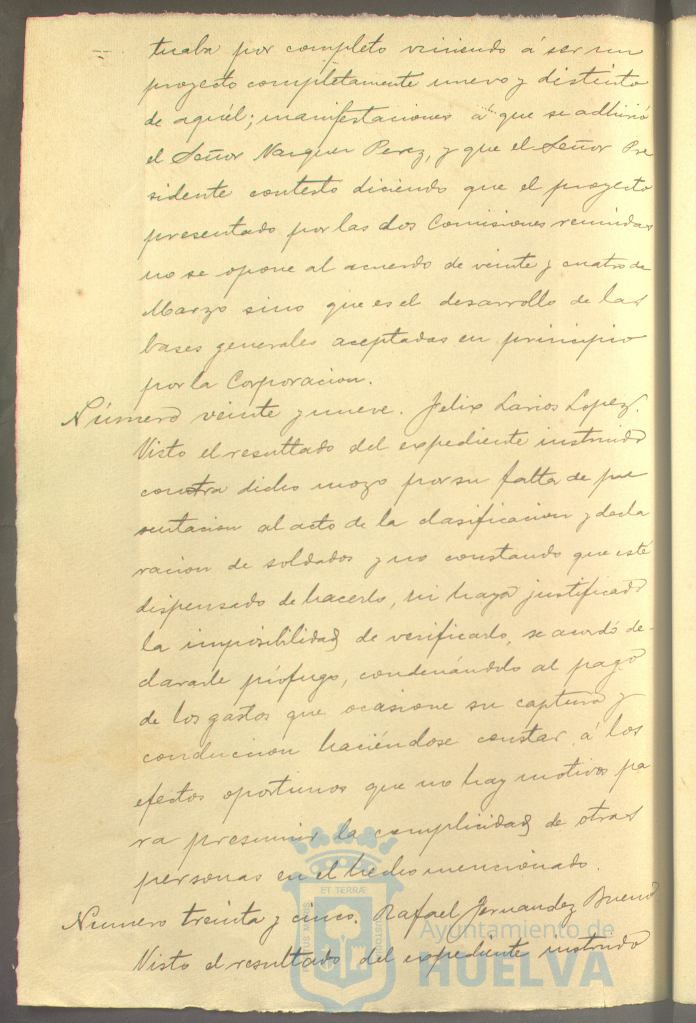 tuaba por completo viniendo á ser un
proyecto completamente nuevo y distinto
de aquél; manifestaciones á que se adhirió
el Señor Vazquez Perez, y que el Señor Pre
sidente contestó diciendo que el proyecto
presentado por las dos Comisiones reunidas
no se opone al acuerdo de veinte y cuatro de
Marzo sino que es el desarrollo de las
bases generales aceptadas en principio
por la Corporacion.
Número veinte y nueve. Felix Larios Lopez.
Visto el resultado del expediente instruido
contra dicho mozo por su falta de pre
sentacion al acto de la clasificacion y decla
racion de soldados y no constando que esté
dispensado de hacerlo, ni haya justificado
la imposibilidad de verificarlo, se acordó de-
clararle prófugo, condenándolo al pago
de los gastos que ocasione su captura y
conduccion haciéndose constar á los
efectos oportunos que no hay motivos pa
ra presumir la complicidad de otras
personas en el hecho mencionado.
Número treinta y cinco. Rafael Fernandez Bueno
Visto el resultado del expediente instruido
ET TERRÆ
Ayuntamiento de
HUELVA